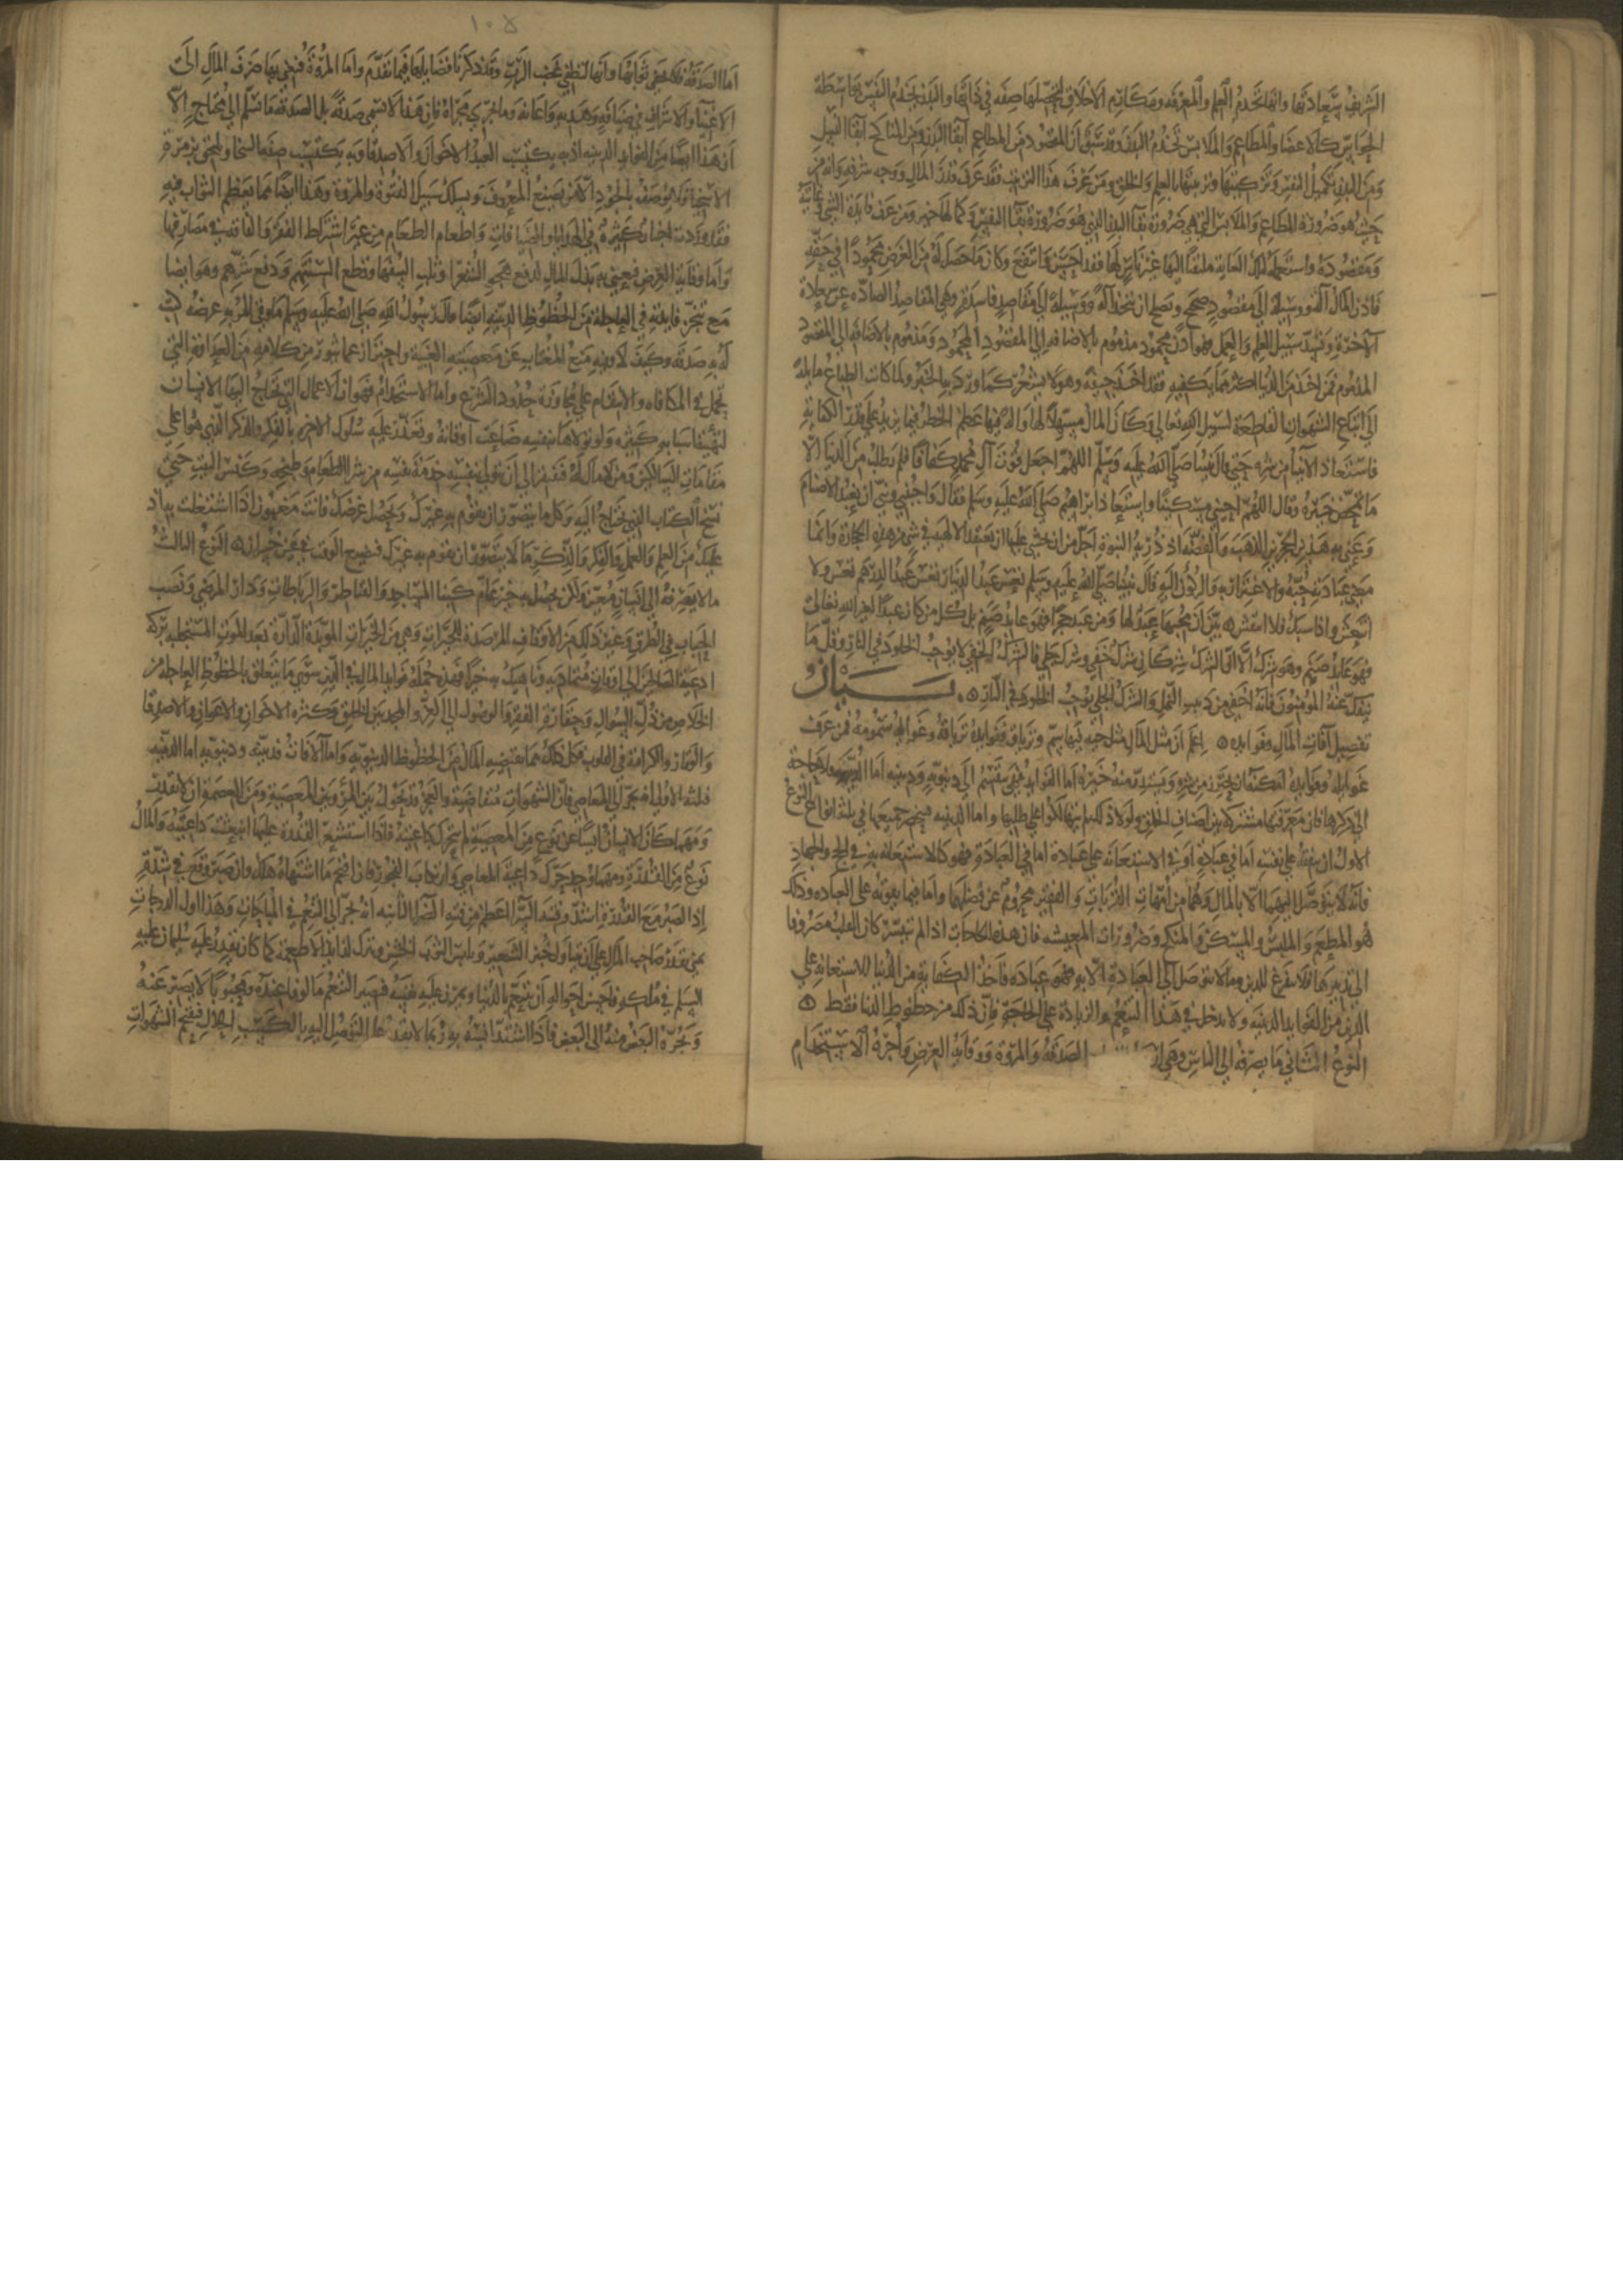 الشريف بسعادتها وانها تخدم العلم والمعرفة ومكارم الاخلاق لتحصلها صفة في ذاتها والبدن يخدم النفس بواسطة
الحواس كالاعضا والمطاعم والملابس تخدم البدن وقد سبق ان المقصود من المطاعم ابقا البدن ومن المناكح ابقا النسل
ومن البدن تكميل النفس وتزكيتها وتزيينها بالعلم والخلق ومن عرف هذا الترتيب فقد عرف قدر المال ووجه شرفه وانه من
حيث هو ضرورة المطاعم والملابس التي هي ضرورة بقا البدن الذي هو ضرورة بقا النفس وكمالها خير ومن عرف فايدة الشي وغايته
ومقصوده واستعمله لتلك الغاية ملتفتا اليها غير ناس لها فقد احسن وانتفع وكان ما حصل له من الغرض محمودا في حقه
فاذن المال آلة ووسيلة الى مقصود صحيح ويصلح ان يتخذ آلة ووسيلة الى مقاصد فاسدة وهي المقاصد الصادة عن سعادة
الآخرة وتسد سبيل العلم والعمل فهو اذن محمود مذموم بالاضافة الى المقصود المحمود ومذموم بالاضافة الى المقصود
المذموم فمن اخذ من الدنيا اكثر مما يكفيه فقد اخذ حتفه وهو لا يشعر كما ورد به الخبر ولما كانت الطباع مايلة
الى اتباع الشهوات القاطعة لسبيل الله تعالى وكان المال مسهلا لها وآلة فيها عظم الخطر فيما يزيد على قدر الكفاية
فاستعاذ الانبيا من شره حتى قال نبينا صلى الله عليه وسلم اللهم اجعل قوت آل محمد كفافا فلم يطلب من الدنيا الا
ما يتمحض خيره وقال اللهم احيني مسكينا واستعاذ ابراهيم صلى الله عليه وسلم فقال واجنبني وبني ان نعبد الاصنام
وعنى به هذين الحجرين الذهب والفضة اذ رتبة النبوة اجل من ان يخشى عليها ان تعتقد الالهية في شي من هذه الحجارة وانما
معنى عبادته حبه والاغترار به والركون اليه قال نبينا صلى الله عليه وسلم تعس عبد الدينار تعس عبد الدرهم تعس ولا
انتعش واذا شيك فلا انتقش ۞ بين ان محبهما عابد لها ومن عبد حجرا فهو عابد صنم بل كل من كان عبدا لغير الله تعالى
فهو عابد صنم وهو شرك الا ان الشرك شركان شرك خفي وشرك جلي فالشرك الخفي لا يوجب الخلود في النار وقل ما
ينفك عنه المؤمنون فانه اخفى من دبيب النمل والشرك الجلي يوجب الخلود في النار ۞ بيان
تفصيل آفات المال وفوايده ۞ اعلم ان مثل المال مثل حية فيها سم وترياق ففوايده ترياقه وغوايله سمومه فمن عرف
غوايله وفوايده امكنه ان يحترز من شره ويستدر منه خيره اما الفوايد فهي تنقسم الى دنيوية ودينية اما الدنيوية ولا حاجة
الى ذكرها فان معرفتها مشتركة بين اصناف الخلق ولولا ذلك لم يتهالكوا على طلبها واما الدينية فينحصر جميعها في ثلثة انواع النوع
الاول ان ينفقه على نفسه اما في عبادة او في الاستعانة على عبادة اما في العبادة فهو كالاستعانة به في الحج والجهاد
فانه لا يتوصل اليهما الا بالمال وهما من امهات القربات والفقير محروم عن فضلهما واما فيما يقويه على العبادة وذلك
هو المطعم والملبس والمسكن والمنكح وضرورات المعيشة فان هذه الحاجات اذا لم تتيسر كان القلب مصروفا
الى تدبيرها فلا يتفرغ للدين وما لا يتوصل الى العبادة الا به فهو عبادة فاخذ الكفاية من الدنيا للاستعانة على
الدين من الفوايد الدينية ولا يدخل في هذا التنعم والزيادة على الحاجة فان ذلك من حظوظ الدنيا فقط ۞
النوع الثاني ما يصرفه الى الناس وهي الصدقة والمروة ووقاية العرض واجرة الاستخدام
١٠٥
اما الصدقة فلا يخفى ثوابها وانها لتطفي غضب الرب وقد ذكرنا فضايلها فيما تقدم واما المروة فنعني بها صرف المال الى
الاغنيا والاشراف في ضيافة وهدية واعانة وما يجري مجراه فان هذا لا تسمى صدقة بل الصدقة ما تسلم الى محتاج الا
ان هذا ايضا من الفوايد الدينية اذ به يكتسب العبد الاخوان والاصدقا وبه يكتسب صفة السخا ويلتحق بزمرة
الاسخيا ولا يوصف بالجود الا من يصنع المعروف ويسلك سبيل الفتوة والمروة وهذا ايضا مما يعظم الثواب فيه
فقد وردت اخبار كثيرة في الهدايا والضيافات واطعام الطعام من غير اشتراط الفقر والفاقة في مصارفها
واما وقاية العرض فيعني به بذل المال لدفع هجو الشعرا وثلب السفها وقطع السنتهم ودفع شرهم وهو ايضا
مع تنجز فايدته في العاجلة من الحظوظ الدينية ايضا قال رسول الله صلى الله عليه وسلم ما وقى المرء به عرضه كتب
له به صدقة وكيف لا وفيه منع المغتاب عن معصية الغيبة واحتراز عما يثور من كلامه من العداوة التي
تحمل في المكافاة والانتقام على مجاوزة حدود الشرع واما الاستخدام فهو ان الاعمال التي يحتاج اليها الانسان
لتهيئة اسبابه كثيرة ولو تولاها بنفسه ضاعت اوقاته وتعذر عليه سلوك الاخرة بالفكر والذكر الذي هو اعلى
مقامات السالكين ومن لا مال له فيفتقر الى ان يتولى بنفسه خدمة نفسه من شرا الطعام وطبخه وكنس البيت حتى
نسخ الكتاب الذي يحتاج اليه وكل ما يتصور ان يقوم به غيرك ويحصل غرضك فانت مغبون اذا اشتغلت به اذ
عليك من العلم والعمل والفكر والذكر ما لا يتصور ان يقوم به غيرك فتضييع الوقت في غيره خسران ۞ النوع الثالث
ما لا يصرفه الى انسان معين ولكن يحصل به خير عام كبنا المساجد والقناطر والرباطات ودار المرضى ونصب
الحباب في الطرق وغير ذلك من الاوقاف المرصدة للخيرات وهي من الخيرات المؤبدة الدارة بعد الموت المستجلبة بركة
ادعية الصالحين الى اوقات متمادية وناهيك به خيرا فهذه جملة فوايد المال في الدين سوى ما يتعلق بالحظوظ العاجلة من
الخلاص من ذل السوال وحقارة الفقر والوصول الى العز والمجد بين الخلق وكثرة الاخوان والاعوان والاصدقا
والوقار والكرامة في القلوب فكل ذلك مما يقتضيه المال من الحظوظ الدنيوية واما الآفات فدينية ودنيوية اما الدينية
فثلثة الاولى انه يجر الى المعاصي فان الشهوات متقاضية والعجز قد يحول بين المرء وبين المعصية ومن العصمة ان لا تقدر
ومهما كان الانسان آيسا عن نوع من المعصية لم يتحرك داعيته فاذا استشعر القدرة عليها انبعثت داعيته والمال
نوع من القدرة يحرك داعية المعاصي وارتكاب الفجور فان اقتحم ما اشتهاه هلك وان صبر وقع في شدة
اذ الصبر مع القدرة اشد وفتنة السرا اعظم من فتنة الضرا الثانية انه يجر الى التنعم في المباحات وهذا اول الدرجات
فمتى يقدر صاحب المال على ان يتناول خبز الشعير ويلبس الثوب الخشن ويترك لذايذ الاطعمة كما كان يقدر عليه سليمان عليه
السلم في ملكه فاحسن احواله ان يتنعم بالدنيا ويمرن عليه نفسه فيصير التنعم مالوفا عنده ومحبوبا لا يصبر عنه
ويجره البعض منه الى البعض فاذا اشتد انسه به ربما لا يقدر على التوصل اليه بالكسب الحلال فيقتحم الشبهات